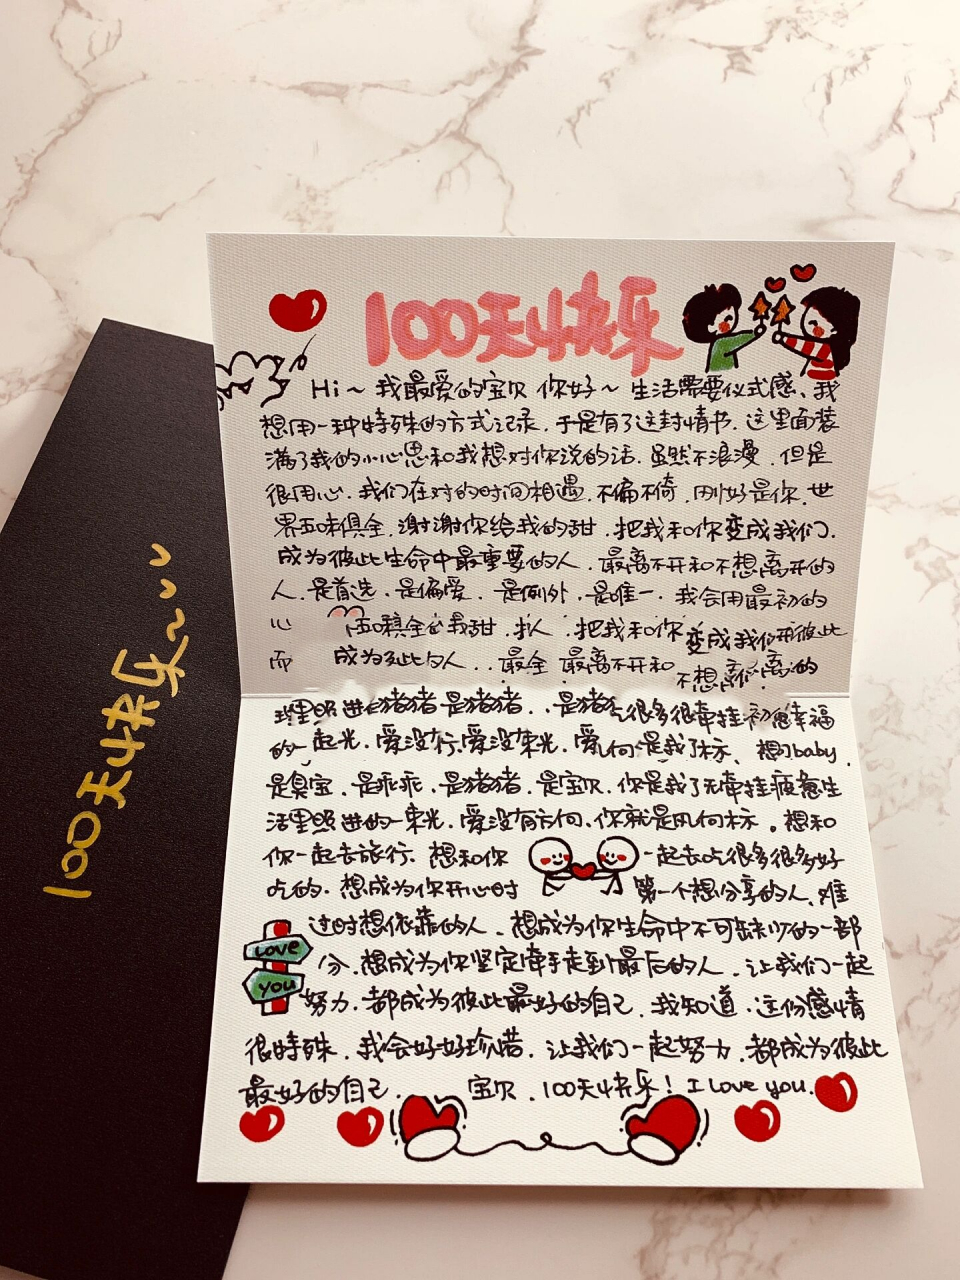 100天快乐
Hi~我最爱的宝贝 你好~生活需要仪式感、我
想用一种特殊的方式记录.于是有了这封情书.这里面装
满了我的小心思和我想对你说的话.虽然不浪漫.但是
很用心.我们在对的时间相遇.不偏不倚.刚好是你.世
界五味俱全.谢谢你给我的甜.把我和你变成我们.
成为彼此生命中最重要的人.最离不开和不想离开的
人.是首选.是偏爱.是例外.是唯一.我会用最初的
心
而 成为 人..最全 最离不开和 不想离
猪猪 是猪猪..是猪 很多很牵挂 幸福
的一起光.爱没行.爱没束光.爱 何是我了标、想 baby.
是臭宝.是乖乖.是猪猪.是宝贝.你是我了无牵挂疲惫生
活里照进的一束光.爱没有方向.你就是风向标.想和
你一起去旅行.想和你 一起去吃很多很多好
吃的.想成为你开心时 第一个想分享的人、难
过时想依靠的人.想成为你生命中不可缺少的一部
分.想成为你坚定牵手走到最后的人.让我们一起
努力.都成为彼此最好的自己.我知道.这份感情
很特殊.我会好好珍惜.让我们一起努力.都成为彼此
最好的自己. 宝贝.100天快乐！I Love you.
LOVE
you
100天快乐~